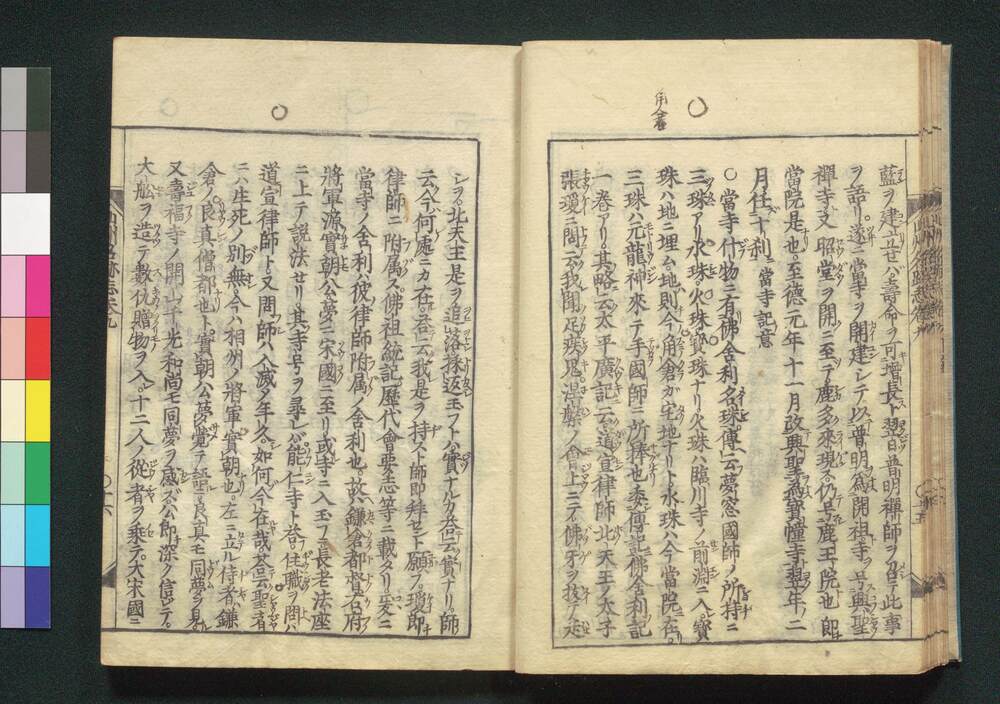 藍ヲ建立セバ壽命ヲ可増長ト翌日普明禪師ヲ召此事
ヲ語リ遂ニ當寺ヲ開建シテ以普明為開祖寺ヲ号興聖
禪寺又昭堂ヲ開ニ至テ鹿多來現ス仍号鹿王院也即
當院是也至德元年十一月改興聖為寳幢寺翌年ノ二
月任十刹當寺記意
〇當寺什物ニ有佛舍利名珠傳云夢窓國師ノ所持ニ
三珠アリ水珠火珠寳珠ナリ火珠ハ臨川寺ノ前淵ニ入寳
珠ハ地ニ埋ム地則今角倉ガ宅地ナリト水珠ハ今當院ニ在
三珠ハ元龍神來テ手國師ニ所捧也委傳記佛舍利記
一卷アリ其略云太平廣記云道宣律師北天王ノ太子
張瓊ニ問云我聞足疾鬼涅槃ノ會上ニテ佛牙ヲ拔テ走
シヲ北天王是ヲ追落採返玉フト公實ナルカ荅云實ナリ師
云今何處ニカ在荅云我是ヲ持スト師即拜セト願フ瓊即
律師ニ附屬ス佛祖統記歷代會要志等ニ載タリ爰ニ
當寺ノ舍利ハ彼律師附屬ノ舍利也故ハ鎌倉都督右府
將軍源實朝公夢ニ宋國ニ至リ或寺ニ入玉フ長老法座
ニ上テ說法セリ其寺号ヲ尋レバ能仁寺ト荅住職ヲ問ハ
道宣律師ト又問師ハ入滅多年久如何今在哉荅云聖者
ニハ生死ノ別無今ハ相州ノ將軍實朝也左ニ立ル侍者ハ鎌
倉ノ良真僧都也ト實朝公夢覚テ語良真モ同夢ヲ見
又壽福寺ノ開山千光和尚モ同夢ヲ感ズ公即深ク信シテ
大舩ヲ造テ數伩贈物ヲ入ル十二人ノ從者ヲ乗テ大宋國ニ